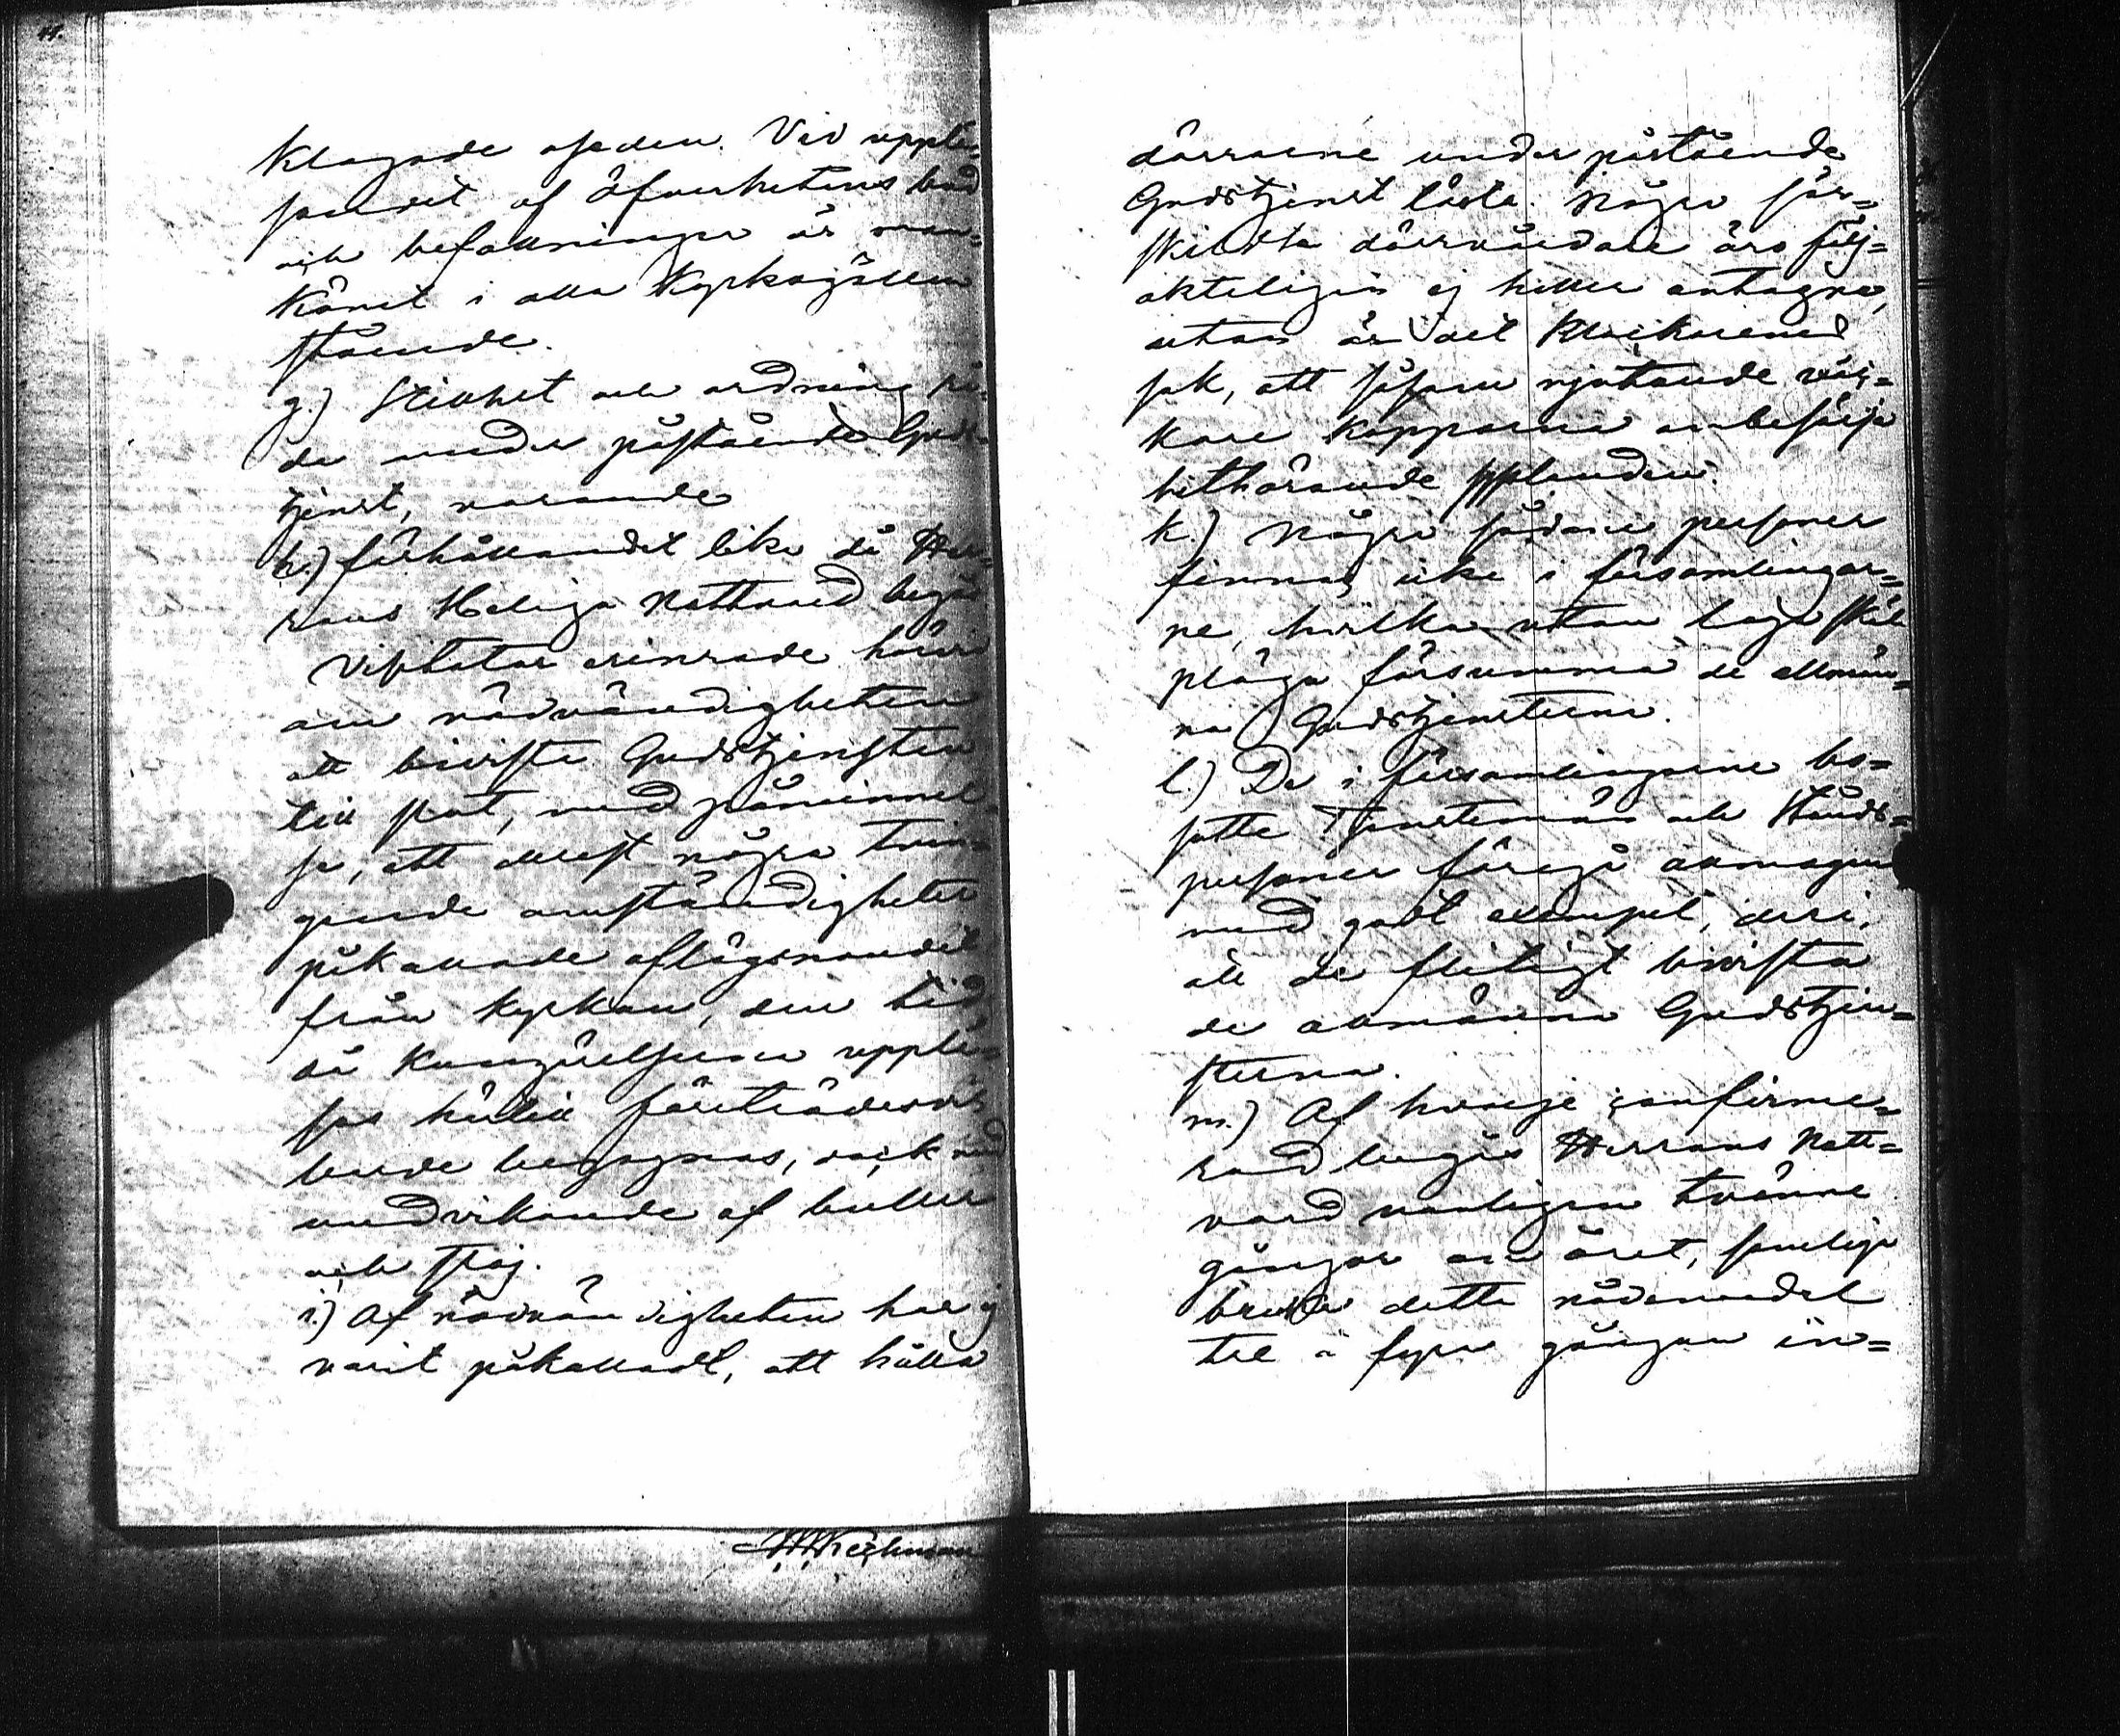 44.
klagade oseden. Vid upplä-
sandet af Öfverhetens bud
och befallningar är man-
könet i alla kyrkogällen
stående.
g.) Stillhet och ordning rå-
da under påstående Guds-
tjenst, varande
h.) förhållandet lika då Her-
rans Heliga Nattvard begås
Visitator erinrade härvid
om nödvändigheten
att bivista Gudstjensten
till slut, med påminnel-
se, att derest några tvin-
gande omständigheter
påkallade aflägsnandet
från kyrkan, den tid
då kungörelserna upplä-
sas härtill företrädesvis
borde begagnas, dock med
undvikande af buller
och stoj.
i.) Af nödvändigheten har ej
varit påkalladt, att hålla
dörrarne under påstående
Gudstjenst låsta. Några sär-
skildta dörrvårdare äro följ-
akteligen ej heller antagne,
utan är det klockarens
sak, att såsom njutande väc-
kare kapparne ombesörja
hithörande åligganden.
k.) Några sådane personer
finnas icke i församlingar-
ne, hvilka utan laga skäl
pläga försumma de allmän-
na Gudstjensterna.
l.) De i församlingarne bo-
satte Tjenstemän och Stånds-
personer föregå allmogen
med godt exempel, deri,
att de flitigt bivista
de allmänna Gudstjen-
sterna.
m.) Af hvarje confirme-
rad begås Herrans Natt-
vard vanligen tvänne
gånger om året, somliga
bruka detta nådemedel
tre à fyra gånger in-